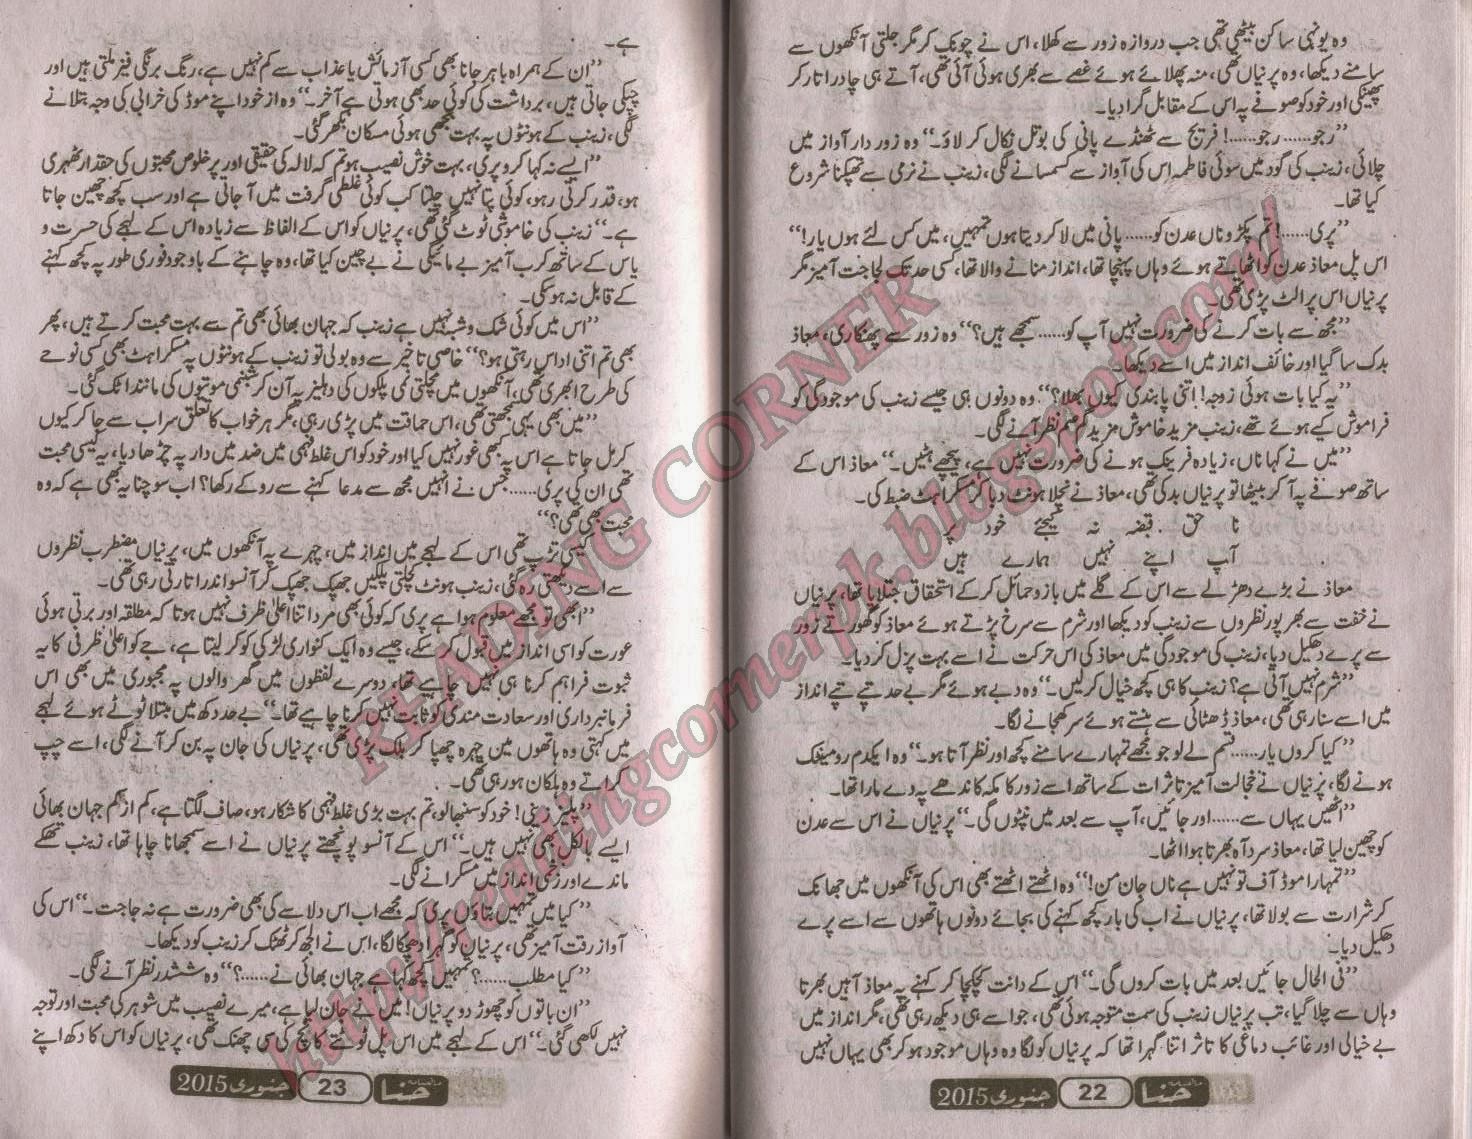 وہ یونہی ساکن بیٹھی تھی جب دروازہ زور سے کھلا، اس نے چونک کر مگر جلتی آنکھوں سے
سامنے دیکھا، وہ پرنیاں تھی، منہ پھلائے ہوئے غصے سے بھری ہوئی آئی تھی، آتے ہی چادر اتار کر
پھینکی اور خود کو صوفے پہ اس کے مقابل گرا دیا۔
’’رجو......رجو......! فریج سے ٹھنڈے پانی کی بوتل نکال کر لاؤ۔‘‘ وہ زور دار آواز میں
چلائی، زینب کی گود میں سوئی فاطمہ اس کی آواز سے کسمسانے لگی، زینب نے نرمی سے تھپکنا شروع
کیا تھا۔
’’پری......! تم پکڑو ناں عدن کو...... پانی میں لا کر دیتا ہوں تمہیں، میں کس لئے ہوں یار!‘‘
اس پل معاذ عدن کو اٹھائے ہوئے وہاں پہنچا تھا، انداز منانے والا تھا، کسی حد تک لجاجت آمیز مگر
پرنیاں اس پر الٹ پڑی تھی۔
’’مجھ سے بات کرنے کی ضرورت نہیں آپ کو......سمجھے ہیں؟‘‘ وہ زور سے پھنکاری، معاذ
بدک سا گیا اور خائف انداز میں اسے دیکھا۔
’’یہ کیا بات ہوئی زوجہ! اتنی پابندی کیوں بھلا؟‘‘ وہ دونوں ہی جیسے زینب کی موجودگی کو
فراموش کیے ہوئے تھے، زینب مزید خاموش مزید گم صم نظر آنے لگی۔
’’میں نے کہا ناں، زیادہ فرینک ہونے کی ضرورت نہیں ہے، پیچھے ہٹیں۔‘‘ معاذ اس کے
ساتھ صوفے پہ آ کر بیٹھا تو پرنیاں بدکی تھی، معاذ نے نچلا ہونٹ دبا کر مسکراہٹ ضبط کی۔
نا حق قبضہ نہ کیجئے خود پر
آپ اپنے نہیں ہمارے ہیں
معاذ نے بڑے دھڑلے سے اس کے گلے میں بازو حمائل کر کے استحقاق جتلایا تھا، پرنیاں
نے خفت سے بھرپور نظروں سے زینب کو دیکھا اور شرم سے سرخ پڑتے ہوئے معاذ کو گھورتے زور
سے پرے دھکیل دیا، زینب کی موجودگی میں معاذ کی اس حرکت نے اسے بہت پزل کر دیا۔
’’شرم نہیں آتی ہے؟ زینب کا ہی کچھ خیال کر لیں۔‘‘ وہ دبے ہوئے مگر بے حد تپے تپے انداز
میں اسے سنا رہی تھی، معاذ ڈھٹائی سے ہنستے ہوئے سر کھجانے لگا۔
’’کیا کروں یار......قسم لے لو جو مجھے تمہارے سامنے کچھ اور نظر آتا ہو۔‘‘ وہ ایکدم رومینٹک
ہونے لگا، پرنیاں نے خجالت آمیز تاثرات کے ساتھ اسے زور کا مکہ کاندھے پہ دے مارا تھا۔
’’اٹھیں یہاں سے......اور جائیں، آپ سے بعد میں نپٹوں گی۔‘‘ پرنیاں نے اس سے عدن
کو چھین لیا تھا، معاذ سرد آہ بھرتا ہوا اٹھا۔
’’تمہارا موڈ آف تو نہیں ہے ناں جان من!‘‘ وہ اٹھتے اٹھتے بھی اس کی آنکھوں میں جھانک
کر شرارت سے بولا تھا، پرنیاں نے اب کی بار کچھ کہنے کی بجائے دونوں ہاتھوں سے اسے پرے
دھکیل دیا۔
’’فی الحال جائیں بعد میں بات کروں گی۔‘‘ اس کے دانت کچکچا کر کہنے پہ معاذ آہیں بھرتا
وہاں سے چلا گیا، تب پرنیاں زینب کی سمت متوجہ ہوئی تھی، جو اسے ہی دیکھ رہی تھی، مگر انداز میں
بے خیالی اور غائب دماغی کا تاثر اتنا گہرا تھا کہ پرنیاں کو لگا وہ وہاں موجود ہو کر بھی یہاں نہیں
حنا 22 جنوری 2015
ہے۔
’’ان کے ہمراہ باہر جانا بھی کسی آزمائش یا عذاب سے کم نہیں ہے، رنگ برنگی فینز ملتی ہیں اور
چپکی جاتی ہیں، برداشت کی کوئی حد بھی ہوتی ہے آخر۔‘‘ وہ از خود اپنے موڈ کی خرابی کی وجہ بتلانے
لگی، زینب کے ہونٹوں پہ بہت بجھی ہوئی مسکان بکھر گئی۔
’’ایسے نہ کہا کرو پری، بہت خوش نصیب ہو تم کہ لالہ کی حقیقی اور پر خلوص محبتوں کی حقدار ٹھہری
ہو، قدر کرتی رہو، کوئی پتا نہیں چلتا کب کوئی غلطی گرفت میں آ جاتی ہے اور سب کچھ چھین جاتا
ہے۔‘‘ زینب کی خاموشی ٹوٹ گئی تھی، پرنیاں کو اس کے الفاظ سے زیادہ اس کے لہجے کی حسرت و
یاس کے ساتھ کرب آمیز بے مائیگی نے بے چین کیا تھا، وہ چاہنے کے باوجود فوری طور پہ کچھ کہنے
کے قابل نہ ہو سکی۔
’’اس میں کوئی شک و شبہ نہیں ہے زینب کہ جہان بھائی بھی تم سے بہت محبت کرتے ہیں، پھر
بھی تم اتنی اداس رہتی ہو؟‘‘ خاصی تاخیر سے وہ بولی تو زینب کے ہونٹوں پہ مسکراہٹ بھی کسی نوحے
کی طرح ابھری تھی، آنکھوں میں مچلتی نمی پلکوں کی دہلیز پہ آن کر شبنمی موتیوں کی مانند اٹک گئی۔
’’میں بھی یہی سمجھتی تھی، اس حماقت میں پڑی رہی، مگر ہر خواب کا تعلق سراب سے جا کر کیوں
کر مل جاتا ہے اس پہ کبھی غور نہیں کیا اور خود کو اس غلط فہمی میں ضد میں دار پہ چڑھا دیا، یہ کیسی محبت
تھی ان کی پری......جس نے انہیں مجھ سے مدعا کہنے سے روکے رکھا؟ اب سوچنا یہ بھی ہے کہ وہ
محبت بھی تھی؟‘‘
کیسی تڑپ تھی اس کے لہجے میں انداز میں، چہرے پہ آنکھوں میں، پرنیاں مضطرب نظروں
سے اسے دیکھتی رہ گئی، زینب ہونٹ کچلتی پلکیں جھپک جھپک کر آنسو اندر اتارتی رہی تھی۔
’’ابھی تو مجھے معلوم ہوا ہے پری کہ کوئی بھی مرد اتنا اعلیٰ ظرف نہیں ہوتا کہ مطلقہ اور برتی ہوئی
عورت کو اسی انداز میں قبول کر سکے، جیسے وہ ایک کنواری لڑکی کو کر لیتا ہے، جے کو اعلیٰ ظرفی کا یہ
ثبوت فراہم کرنا ہی نہیں چاہیے تھا، دوسرے لفظوں میں گھر والوں پہ مجبوری میں بھی اس
فرمانبرداری اور سعادت مندی کو ثابت نہیں کرنا چاہیے تھا۔‘‘ بے حد دکھ میں مبتلا ٹوٹے ہوئے لہجے
میں کہتی وہ ہاتھوں میں چہرہ چھپا کر بلک پڑی تھی، پرنیاں کی جان پہ بن کر آنے لگی، اسے چپ
کراتے وہ ہلکان ہو رہی تھی۔
’’پلیز زینی! خود کو سنبھالو، تم بہت بڑی غلط فہمی کا شکار ہو، صاف لگتا ہے، کم از کم جہان بھائی
ایسے بالکل بھی نہیں ہیں۔‘‘ اس کے آنسو پونچھتے پرنیاں نے اسے سمجھانا چاہا تھا، زینب تھکے
ماندے اور زخمی انداز میں مسکرانے لگی۔
’’کیا میں تمہیں بتاؤں پری کہ مجھے اب اس دلاسے کی بھی ضرورت ہے نہ حاجت۔‘‘ اس کی
آواز رقت آمیز تھی، پرنیاں کو گہرا دھچکا لگا، اس نے الجھ کر ٹھٹک کر زینب کو دیکھا۔
’’کیا مطلب......؟ تمہیں کچھ کہا ہے جہان بھائی نے......؟‘‘ وہ ششدر نظر آنے لگی۔
’’ان باتوں کو چھوڑ دو پرنیاں! میں نے جان لیا ہے، میرے نصیب میں شوہر کی محبت اور توجہ
نہیں لکھی گئی۔‘‘ اس کے لہجے میں اس پل ٹوٹتے کانچ کی سی چھنک تھی، پرنیاں کو اس کا دکھ اپنے
حنا 23 جنوری 2015
READING CORNER
http://readingcornerpk.blogspot.com/